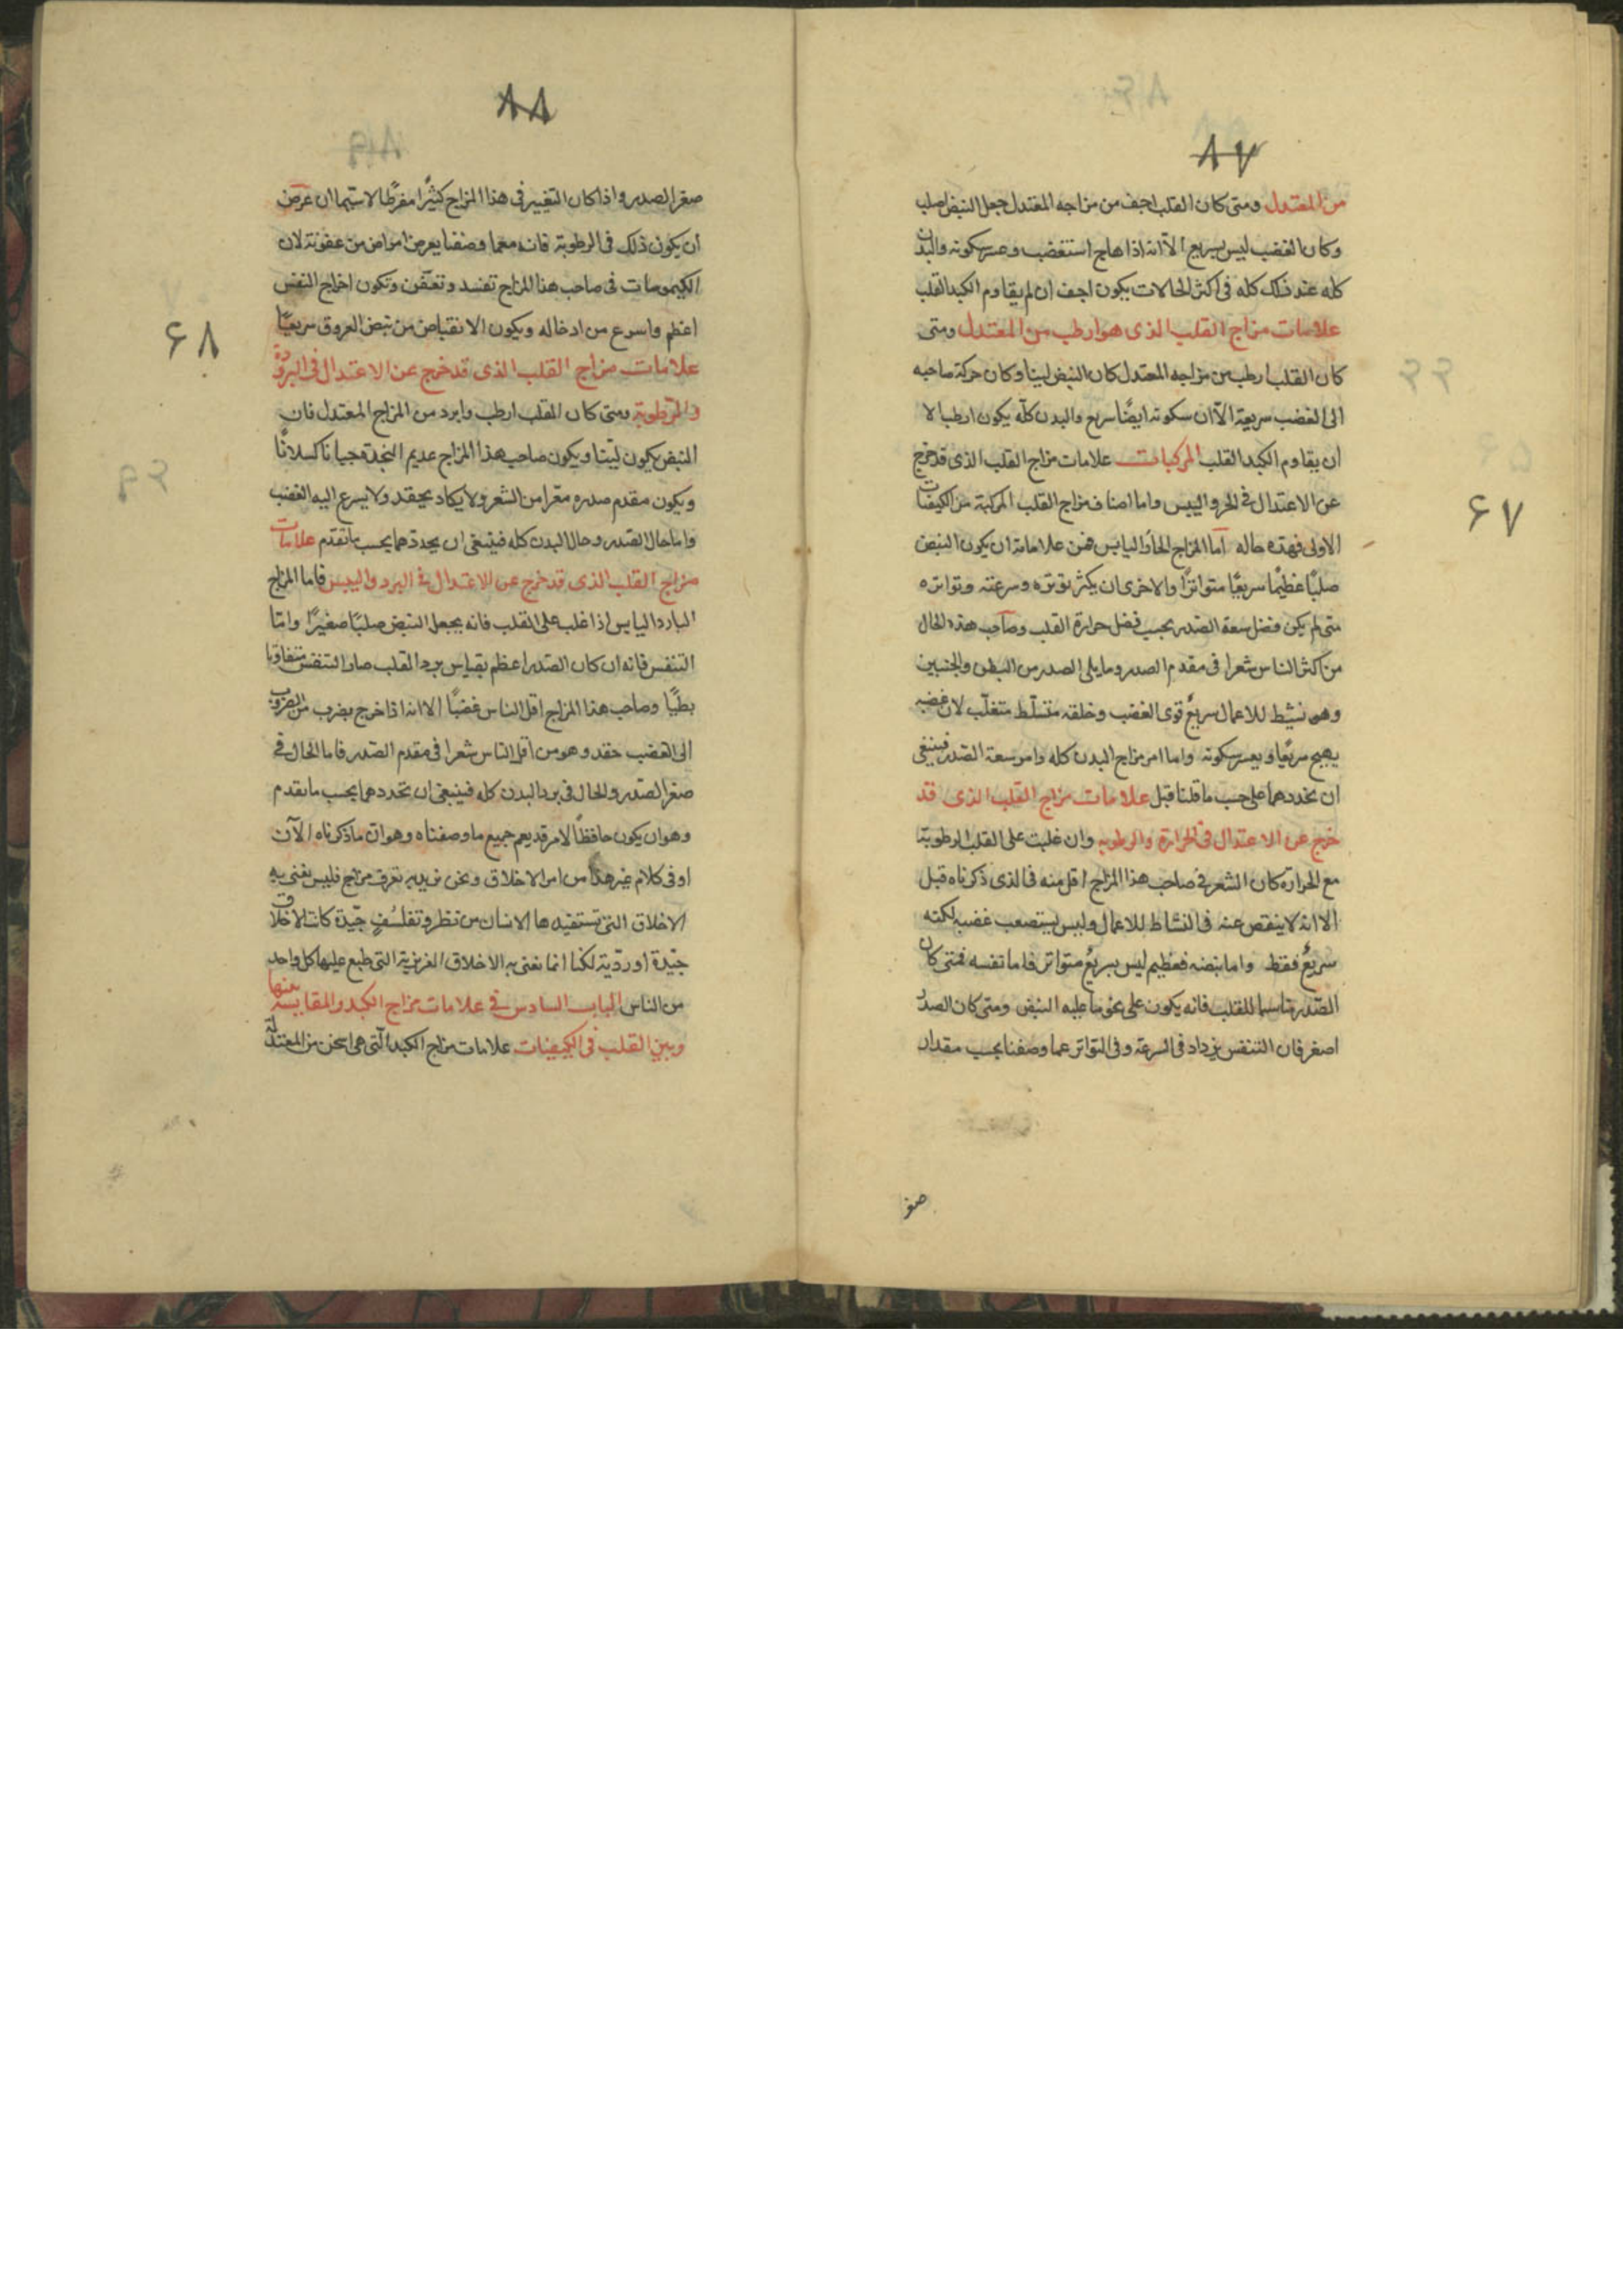 ۸۷
من المعتدل ومتى كان القلب اجف من مزاجه المعتدل جعل النبض اصلب
وكان الغضب ليس بسريع الا انه اذا هاج استغضب وعسر سكونه والبدن
كله عند ذلك كله فى اكثر الحالات يكون اجف ان لم يقاوم الكبد القلب
علامات مزاج القلب الذى هو ارطب من المعتدل ومتى
كان القلب ارطب من مزاجه المعتدل كان النبض لينا وكان حركة صاحبه
الى الغضب سريعة الاّ ان سكونه ايضًا سريع والبدن كلّه يكون ارطب الا
ان يقاوم الكبد القلب المركبات علامات مزاج القلب الذى قد خرج
عن الاعتدال فى الحر واليبس واما اصناف مزاج القلب المركبة من الكيفيات
الاولى فهذه حاله اما المزاج الحار اليابس فمن علاماته ان يكون النبض
صلبًا عظيمًا سريعًا متواترًا والاخرى ان يكثر توتره وسرعته وتواتره
متى لم يكن فضل سعة الصدر بحسب فضل حرارة القلب وصاحب هذه الحال
من اكثر الناس شعرا فى مقدم الصدر وما يلى الصدر من البطن والجنبين
وهو نشيط للاعمال سريع قوى الغضب وخلقه متسلّط متغلّب لان غضبه
يهيج سريعًا ويعسر سكونه واما امر مزاج البدن كله وامر سعة الصدر فينبغى
ان نحددهما على حسب ما قلنا قبل علامات مزاج القلب الذى قد
خرج عن الاعتدال فى الحرارة والرطوبه وان غلبت على القلب الرطوبة
مع الحرارة كان الشعر فى صاحب هذا المزاج اقل منه فى الذى ذكرناه قبل
الا انه لا ينقص عنه فى النشاط للاعمال وليس يستصعب غضبه لكنه
سريع فقط واما نبضه فعظيم ليس سريع متواتر فاما تنفسه فمتى كان
الصّدر مناسبا للقلب فانه يكون على نحو ما عليه النبض ومتى كان الصدر
اصغر فان التنفس يزداد فى السرعة وفى التواتر عما وصفنا بحسب مقدار
صغر
۶۷
۸۸
صغر الصدر واذا كان التغيير فى هذا المزاج كثيرًا مفرطًا لاسيما ان عرض
ان يكون ذلك فى الرطوبة فانه مع ما وصفنا يعرض امراض من عفونة لان
الكيموسات فى صاحب هذا المزاج تفسد وتعفّن وتكون اخراج النفس
اعظم واسرع من ادخاله ويكون الانقباض من نبض العروق سريعًا
علامات مزاج القلب الذى قد خرج عن الاعتدال فى البرودة
والرّطوبة ومتى كان القلب ارطب وابرد من المزاج المعتدل فان
النبض يكون ليّنا ويكون صاحب هذا المزاج عديم النجدة جبانا كسلانًا
ويكون مقدم صدره معّرا من الشعر ولا يكاد يحقد ولا يسرع اليه الغضب
واما حال الصّدر وحال البدن كله فينبغى ان يحددهما بحسب ما تقدّم علامات
مزاج القلب الذى قد خرج عن الاعتدال فى البرد واليبس فاما المزاج
البارد اليابس اذا غلب على القلب فانه يجعل النبض صلبًا صغيرًا وامّا
التنفس فانه ان كان الصّدر اعظم بقياس برد القلب صار التنفس متفاوتا
بطيًا وصاحب هذا المزاج اقل الناس غضبًا الا انه اذا خرج بضرب من الضروب
الى الغضب حقد وهو من اقل الناس شعرا فى مقدم الصّدر فاما الحال فى
صغر الصّدر والحال فى برد البدن كله فينبغى ان تحددهما بحسب ما تقدم
وهو ان يكون حافظًا لامر قد يعم جميع ما وصفناه وهو ان ما ذكرناه الآن
او فى كلام غير هذا من امر الاخلاق ونحن نريد به تعرف مزاج فليس نعنى به
الاخلاق التى تستفيدها الانسان من نظر وتفلسُفٍ جيّدة كانت الاخلاق
جيّدة او رديّة لكنا انما نعنى به الاخلاق الغريزية التى طبع عليها كل واحد
من الناس الباب السادس فى علامات مزاج الكبد والمقايسة بينها
وبين القلب فى الكيفيات علامات مزاج الكبد التى هى اسخن من المعتدلة
۶۸